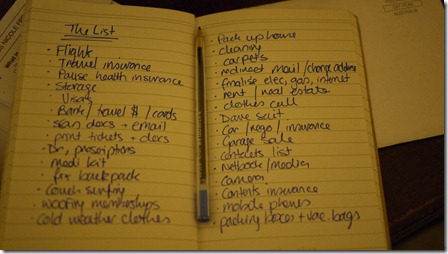 The List
· Flights
· Travel insurance
· Pause health insurance
· Storage
· Visas
· Bank / travel $ / cards
· scan docs → email
· print tickets + docs
· Dr, prescriptions
· medi kit
· fix backpack
· Couch surfing
· woofing memberships
· Cold weather clothes
· Pack up house
· cleaning
· carpets
· redirect mail / change address
· finalise elec, gas, internet
· rent / real estate
· clothes cull
· Dave suit
· Car / rego / insurance
· Garage sale
· contacts list
· Netbook / media
· Camera
· Contents insurance
· mobile phones
· packing boxes + vac. bags